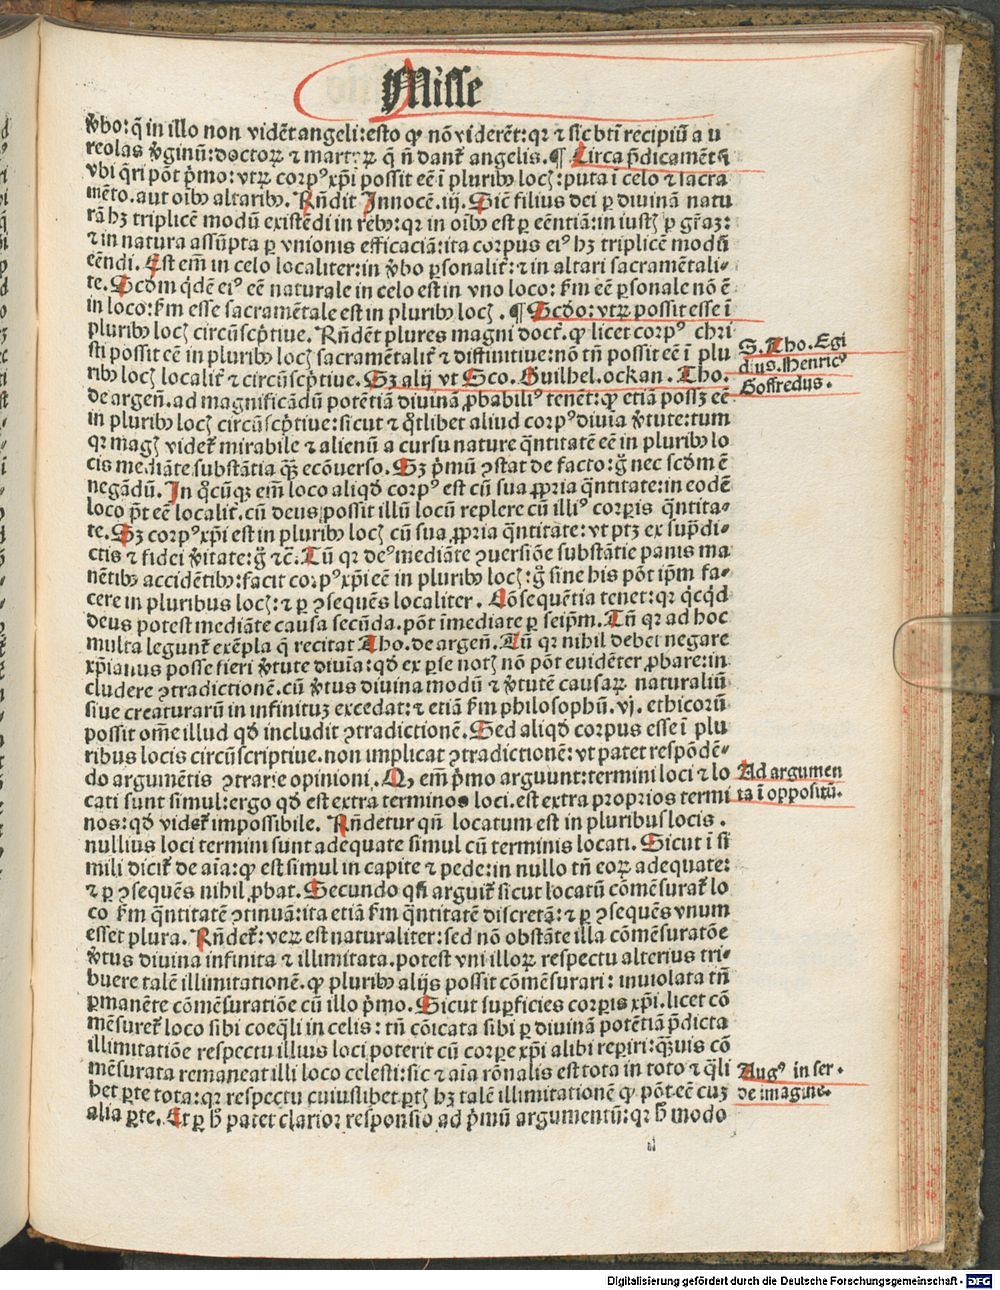 Misse
v̄bo: q̄ in illo non vidēt angeli: esto ꝙ nō viderēt: qꝛ ⁊ sic btī recipiū a u
reolas v̄ginū: doctoꝝ ⁊ martyꝝ q̄ n̄ dant̄ angelis. ¶ Circa p̄dicamētū
vbi q̄ri pōt p̄mo: vtꝝ corpꝰ xp̄i possit eē ī pluribꝫ locꝭ: puta ī celo ⁊ sacra
mēto. aut oībꝫ altaribꝫ. Rn̄dit Innocē. iij. Sic̄ filius dei ꝑ diuinā natu
rā hꝫ triplicē modū existēdi in rebꝫ: qꝛ in oībꝫ est ꝑ eēntiā: in iustꝭ ꝑ gr̄aꝫ:
⁊ in natura assūpta ꝑ vnionis efficaciā: ita corpus eiꝰ hꝫ triplicē modū
eēndi. Est em̄ in celo localiter: in v̄bo ꝑsonalit̄: ⁊ in altari sacramētali⸗
te. Scdm qͥdē eiꝰ eē naturale in celo est in vno loco: ẜm eē ꝑsonale nō ē
in loco: ẜm esse sacramētale est in pluribꝫ locꝭ. ¶ Scd̄o: vtꝝ possit esse ī
pluribꝫ locꝭ circūscp̄tiue. Rn̄dēt plures magni doct̄. ꝙ licet corpꝰ chri
sti possit eē in pluribꝫ locꝭ sacramētalit̄ ⁊ diffinitiue: nō tn̄ possit eē ī plu
ribꝫ locꝭ localit̄ ⁊ circūscp̄tiue. Sꝫ alij vt Sco. Guilhel. ockan. Tho.
de argen̄. ad magnificādū potētiā diuinā ꝓbabiliꝰ tenēt: ꝙ etiā possꝫ eē
in pluribꝫ locꝭ circūscp̄tiue: sicut ⁊ qͦtlibet aliud corpꝰ diuīa v̄tute: tum
qꝛ magꝭ videt̄ mirabile ⁊ alienū a cursu nature q̄ntitatē eē in pluribꝫ lo
cis mediāte substātia qꝫ̄ ecōuerso. Sꝫ p̄mū ꝯstat de facto: g̊ nec scdm ē
negādū. In qͦcūqꝫ em̄ loco aliqd̄ corpꝰ est cū sua ꝓpria q̄ntitate: in eodē
loco p̄t eē localit̄. cū deus possit illū locū replere cū illiꝰ corꝑis q̄ntita⸗
te. Sꝫ corpꝰ xp̄i est in pluribꝫ locꝭ cū sua ꝓpria q̄ntitate: vt ptꝫ ex sup̄di⸗
ctis ⁊ fidei v̄itate: g̊ ⁊c̄. Tū qꝛ deꝰ mediāte ꝯuersiōe substātie panis ma
nētibꝫ accidētibꝫ: facit corpꝰ xp̄i eē in pluribꝫ locꝭ: g̊ sine his pōt ip̄m fa⸗
cere in pluribus locꝭ: ⁊ ꝑ ꝯsequēs localiter. Cōsequētia tenet: qꝛ qͥcqͥd
deus potest mediāte causa secūda. pōt īmediate ꝑ seip̄m. Tū qꝛ ad hoc
multa legunt̄ exēpla q̄ recitat Tho. de argen̄. Tū qꝛ nihil debet negare
xp̄ianus posse fieri v̄tute diuīa: qd̄ ex ꝑ se notꝭ nō pōt euidēter ꝓbare: in
cludere ꝯtradictionē. cū v̄tus diuina modū ⁊ v̄tutē causaꝝ naturaliū
siue creaturarū in infinituꝫ excedat: ⁊ etiā ẜm philosophū. vj. ethicorū
possit om̄e illud qd̄ includit ꝯtradictionē. Sed aliqd̄ corpus esse ī plu
ribus locis circūscriptiue. non implicat ꝯtradictionē: vt patet respōdē⸗
do argumētis ꝯtrarie opinioni. Qꝫ em̄ p̄mo arguunt: termini loci ⁊ lo
cati sunt simul: ergo qd̄ est extra terminos loci. est extra proprios termi
nos: qd̄ videt̄ impossibile. Rn̄detur qn̄ locatum est in pluribus locis.
nullius loci termini sunt adequate simul cū terminis locati. Sicut ī si
mili dicit̄ de aīa: ꝙ est simul in capite ⁊ pede: in nullo tn̄ eoꝝ adequate:
⁊ ꝑ ꝯsequēs nihil ꝓbat. Secundo qn̄ arguit̄ sicut locatū cōmēsurat̄ lo
co ẜm q̄ntitatē ꝯtinuā: ita etiā ẜm q̄ntitatē discretā: ⁊ ꝑ ꝯsequēs vnum
esset plura. Rn̄det̄: veꝝ est naturaliter: sed nō obstāte illa cōmēsuratōe
v̄tus diuina infinita ⁊ illimitata. potest vni illoꝝ respectu alterius tri⸗
buere talē illimitationē. ꝙ pluribꝫ alijs possit cōmēsurari: inuiolata tn̄
ꝑmanēte cōmēsuratiōe cū illo p̄mo. Sicut suꝑficies corꝑis xp̄i. licet cō
mēsuret̄ loco sibi coeq̄li in celis: tn̄ cōicata sibi ꝑ diuinā potētiā p̄dicta
illimitatiōe respectu illius loci poterit cū corꝑe xp̄i alibi reꝑiri: qꝫ̄uis cō
mēsurata remaneat illi loco celesti: sic ⁊ aīa rōnalis est tota in toto ⁊ qͣli
bet ꝑte tota: qꝛ respectu cuiuslibet ꝑtꝭ hꝫ talē illimitationē ꝙ pōt eē cuꝫ
alia ꝑte. Et ꝑ h̄ patet clarior responsio ad p̄mū argumentū: qꝛ h̄ modo
S. Tho. Egi
dius. Henricꝰ
Goffredus.
Ad argumen
ta ī oppositū.
Augꝰ in ser.
de imagine.
Digitalisierung gefördert durch die Deutsche Forschungsgemeinschaft - DFG